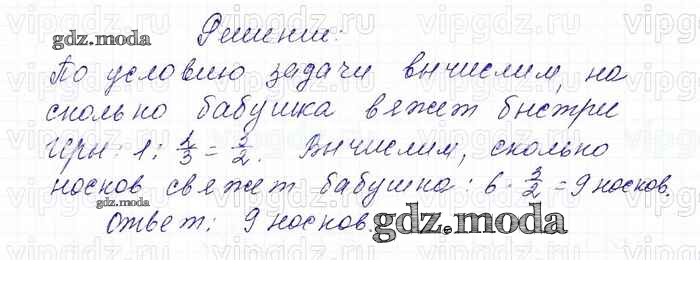 Решение:
По условию задачи вычислим, на
сколько бабушка вяжет быстрее
Иры: 1 : 2/3 = 3/2. Вычислим, сколько
носков свяжет бабушка: 6 · 3/2 = 9 носков.
Ответ: 9 носков.
gdz.moda
gdz.moda
gdz.moda
vipgdz.ru